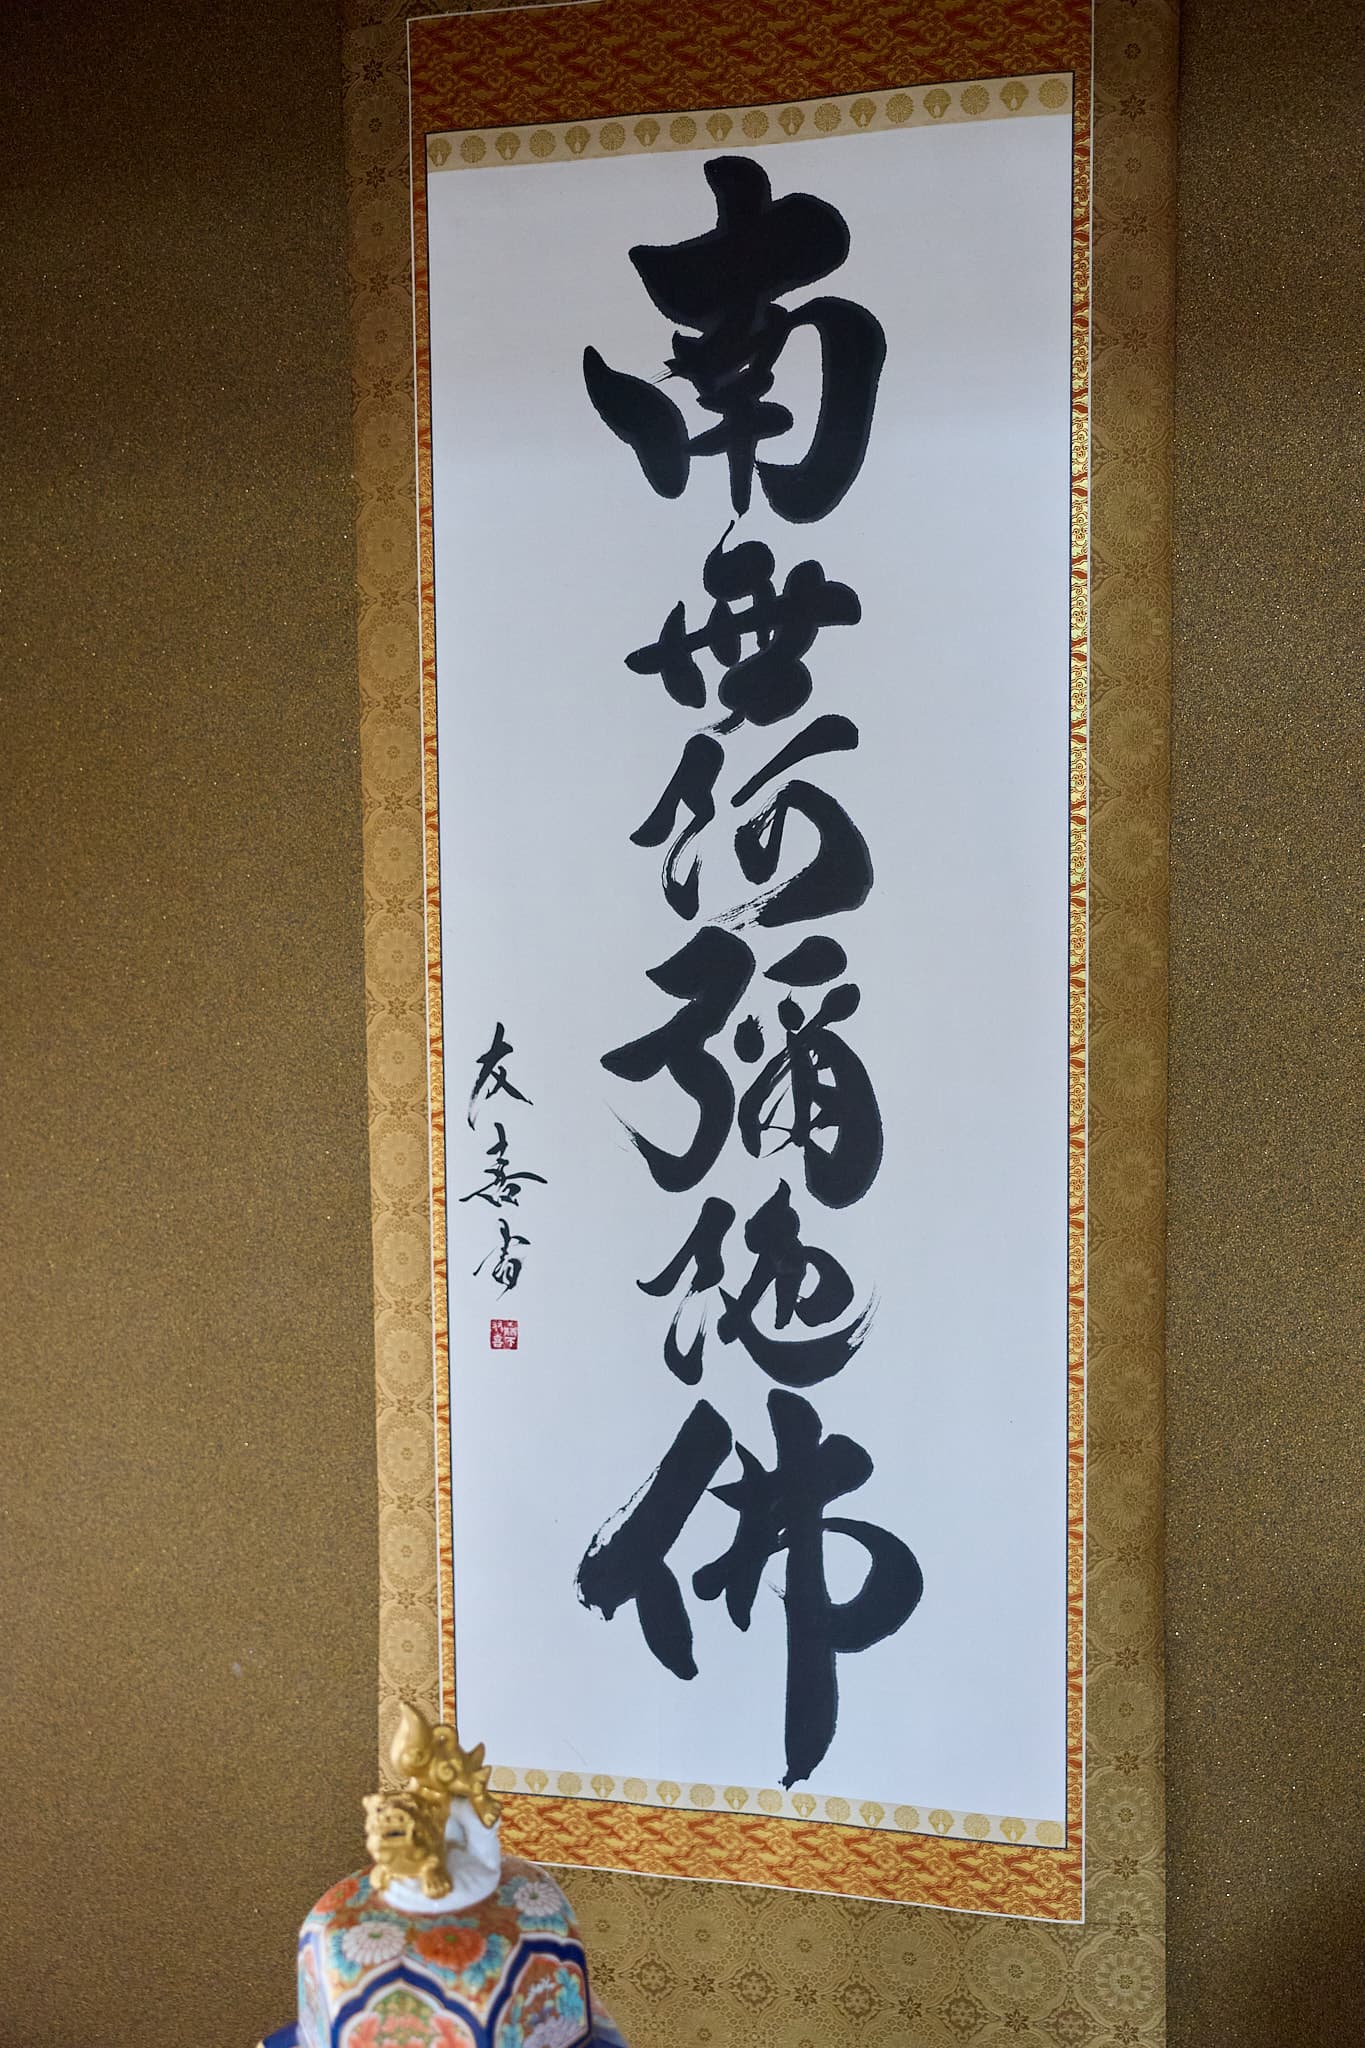 南無阿彌陀佛
友喜書